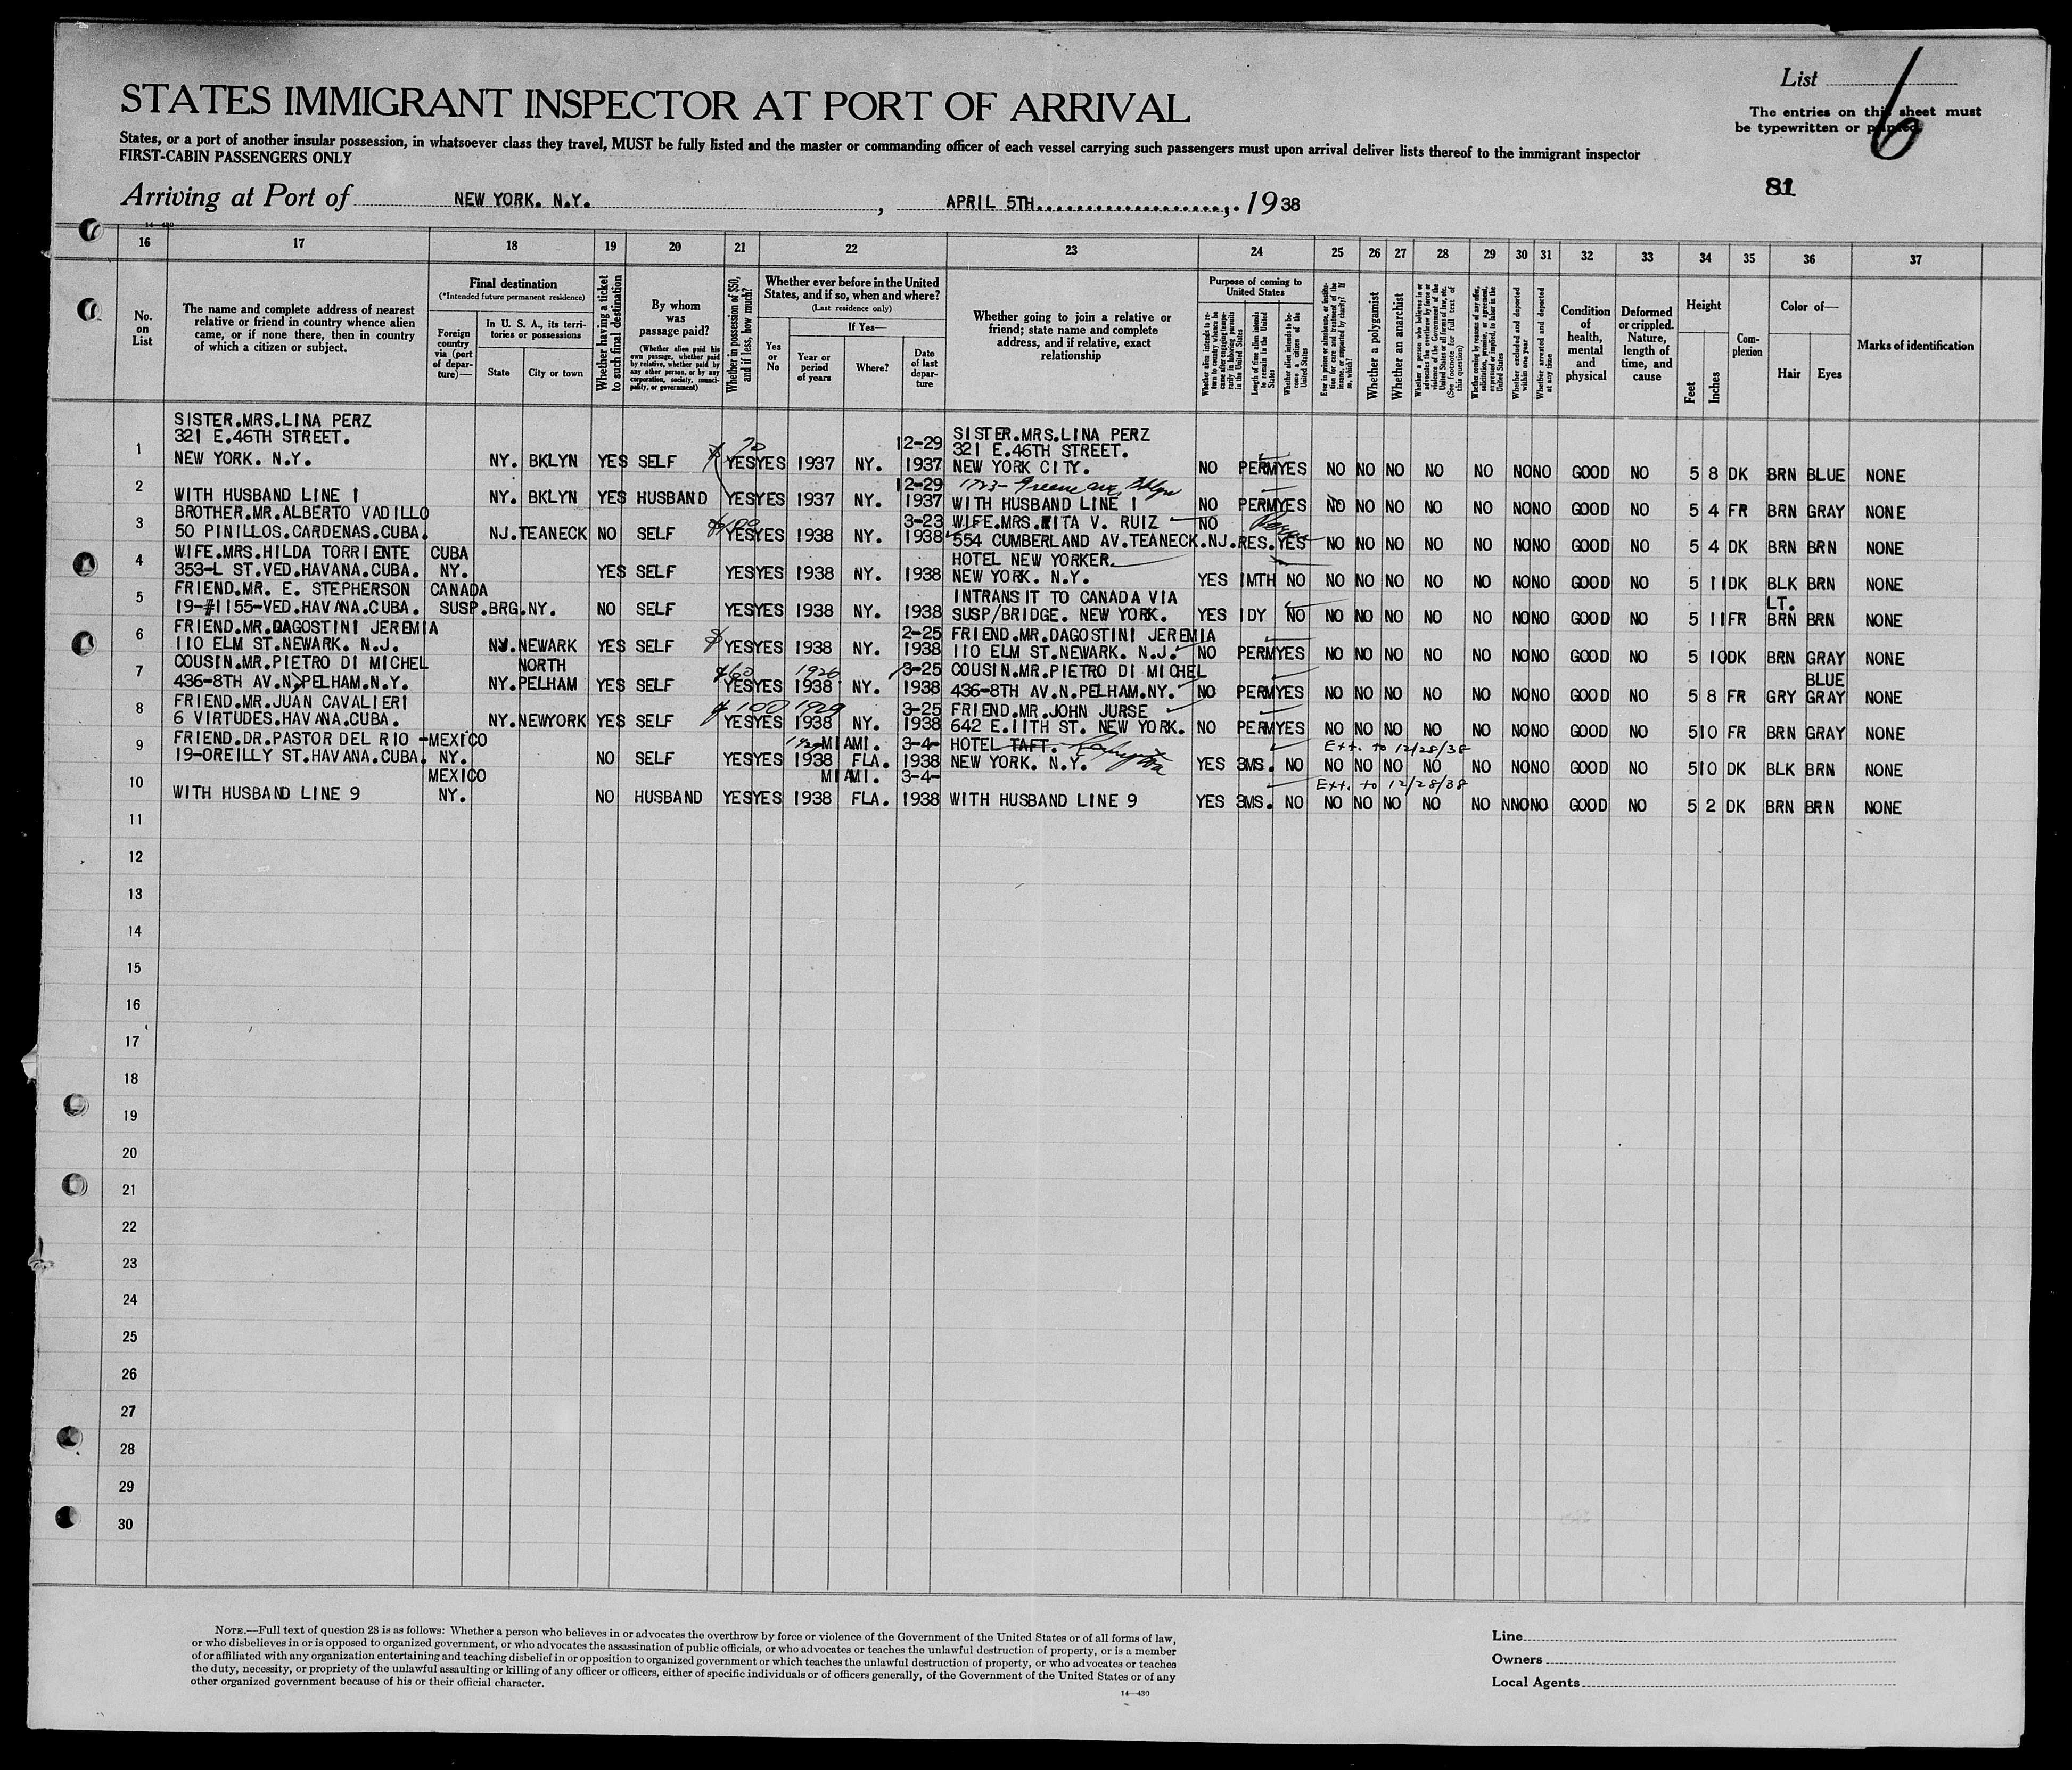 List 6
STATES IMMIGRANT INSPECTOR AT PORT OF ARRIVAL
The entries on this sheet must
be typewritten or printed
States, or a port of another insular possession, in whatsoever class they travel, MUST be fully listed and the master or commanding officer of each vessel carrying such passengers must upon arrival deliver lists thereof to the immigrant inspector
FIRST-CABIN PASSENGERS ONLY
81
Arriving at Port of NEW YORK. N.Y. , APRIL 5TH , 1938
14-430
16 17 18 19 20 21 22 23 24 25 26 27 28 29 30 31 32 33 34 35 36 37
No. on List
The name and complete address of nearest relative or friend in country whence alien came, or if none there, then in country of which a citizen or subject.
Final destination
(*Intended future permanent residence)
Foreign country via (port of departure)—
In U. S. A., its territories or possessions
State
City or town
Whether having a ticket to such final destination
By whom was passage paid?
(Whether alien paid his own passage, whether paid by relative, whether paid by any other person, or by any corporation, society, municipality, or government)
Whether in possession of $50, and if less, how much?
Whether ever before in the United States, and if so, when and where?
(Last residence only)
Yes or No
If Yes—
Year or period of years
Where?
Date of last departure
Whether going to join a relative or friend; state name and complete address, and if relative, exact relationship
Purpose of coming to United States
Whether alien intends to return to country whence he came after engaging temporarily in laboring pursuits in the United States
Length of time alien intends to remain in the United States
Whether alien intends to become a citizen of the United States
Ever in prison or almshouse, or institution for care and treatment of the insane, or supported by charity? If so, which?
Whether a polygamist
Whether an anarchist
Whether a person who believes in or advocates the overthrow by force or violence of the Government of the United States or all forms of law, etc. (See footnote for full text of this question)
Whether coming by reason of any offer, solicitation, promise, or agreement, expressed or implied, to labor in the United States
Whether excluded and deported within one year
Whether arrested and deported at any time
Condition of health, mental and physical
Deformed or crippled. Nature, length of time, and cause
Height
Feet
Inches
Complexion
Color of—
Hair
Eyes
Marks of identification
SISTER.MRS.LINA PERZ SISTER.MRS.LINA PERZ
321 E.46TH STREET. 72 12-29 321 E.46TH STREET.
1 NEW YORK. N.Y. NY. BKLYN YES SELF YES YES 1937 NY. 1937 NEW YORK CITY. NO PERM YES NO NO NO NO NO NO NO GOOD NO 5 8 DK BRN BLUE NONE
12-29 1723- Greene ave, Bklyn
2 WITH HUSBAND LINE 1 NY. BKLYN YES HUSBAND YES YES 1937 NY. 1937 WITH HUSBAND LINE 1 NO PERM YES NO NO NO NO NO NO NO GOOD NO 5 4 FR BRN GRAY NONE
BROTHER.MR.ALBERTO VADILLO $100 3-23 WIFE.MRS.RITA V. RUIZ NO
3 50 PINILLOS.CARDENAS.CUBA. NJ. TEANECK NO SELF YES YES 1938 NY. 1938 554 CUMBERLAND AV.TEANECK.N.J. RES. YES NO NO NO NO NO NO NO GOOD NO 5 4 DK BRN BRN NONE
WIFE.MRS.HILDA TORRIENTE CUBA HOTEL NEW YORKER.
4 353-L ST.VED.HAVANA.CUBA. NY. YES SELF YES YES 1938 NY. 1938 NEW YORK. N.Y. YES 1MTH NO NO NO NO NO NO NO NO GOOD NO 5 11 DK BLK BRN NONE
FRIEND.MR. E. STEPHERSON CANADA INTRANSIT TO CANADA VIA LT.
5 19-#1155-VED.HAVANA.CUBA. SUSP.BRG.NY. NO SELF YES YES 1938 NY. 1938 SUSP/BRIDGE. NEW YORK. YES 1DY NO NO NO NO NO NO NO NO GOOD NO 5 11 FR BRN BRN NONE
FRIEND.MR.DAGOSTINI JEREMIA 2-25 FRIEND.MR.DAGOSTINI JEREMIA
6 110 ELM ST.NEWARK. N.J. NJ. NEWARK YES SELF $ YES YES 1938 NY. 1938 110 ELM ST.NEWARK. N.J. NO PERM YES NO NO NO NO NO NO NO GOOD NO 5 10 DK BRN GRAY NONE
COUSIN.MR.PIETRO DI MICHEL NORTH $60 1926 3-25 COUSIN.MR.PIETRO DI MICHEL BLUE
7 436-8TH AV.N.PELHAM.N.Y. NY. PELHAM YES SELF YES YES 1938 NY. 1938 436-8TH AV.N.PELHAM.NY. NO PERM YES NO NO NO NO NO NO NO GOOD NO 5 8 FR GRY GRAY NONE
FRIEND.MR.JUAN CAVALIERI $100 1929 3-25 FRIEND.MR.JOHN JURSE
8 6 VIRTUDES.HAVANA.CUBA. NY. NEWYORK YES SELF YES YES 1938 NY. 1938 642 E.11TH ST. NEW YORK. NO PERM YES NO NO NO NO NO NO NO GOOD NO 5 10 FR BRN GRAY NONE
FRIEND.DR.PASTOR DEL RIO -MEXICO MIAMI. 3-4- HOTEL TAFT. Ext. to 12/28/38
9 19-OREILLY ST.HAVANA.CUBA. NY. NO SELF YES YES 1938 FLA. 1938 NEW YORK. N.Y. YES 3MS. NO NO NO NO NO NO NO NO GOOD NO 5 10 DK BLK BRN NONE
MEXICO MIAMI. 3-4- Ext. to 12/28/38
10 WITH HUSBAND LINE 9 NY. NO HUSBAND YES YES 1938 FLA. 1938 WITH HUSBAND LINE 9 YES 3MS. NO NO NO NO NO NO NNO NO GOOD NO 5 2 DK BRN BRN NONE
11
12
13
14
15
16
17
18
19
20
21
22
23
24
25
26
27
28
29
30
NOTE.—Full text of question 28 is as follows: Whether a person who believes in or advocates the overthrow by force or violence of the Government of the United States or of all forms of law,
or who disbelieves in or is opposed to organized government, or who advocates the assassination of public officials, or who advocates or teaches the unlawful destruction of property, or is a member
of or affiliated with any organization entertaining and teaching disbelief in or opposition to organized government or which teaches the unlawful destruction of property, or who advocates or teaches
the duty, necessity, or propriety of the unlawful assaulting or killing of any officer or officers, either of specific individuals or of officers generally, of the Government of the United States or of any
other organized government because of his or their official character.
14-430
Line
Owners
Local Agents